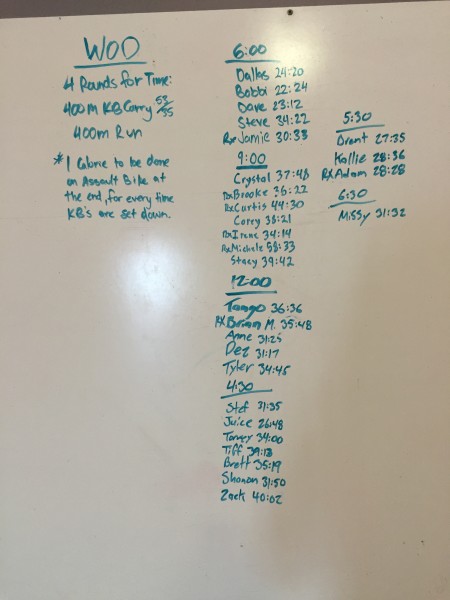 WOD
4 Rounds for Time:
400m KB Carry 53/35
400m Run
*1 Calorie to be done
on Assault Bike at
the end, for every time
KB's are set down.
6:00
Dallas 24:20
Bobbi 22:24
Dave 23:12
Steve 34:22
Rx Jamie 30:33
9:00
Crystal 37:48
Rx Brooke 36:22
Rx Curtis 44:30
Corey 38:21
Rx Irene 34:14
Rx Michele 58:33
Stacy 39:42
12:00
Tango 36:36
RX Brian M. 35:48
Anne 31:25
Dez 31:17
Tyler 34:45
4:30
Stef 31:35
Juice 26:48
34:00
Tiff 39:13
Brett 35:19
Shanon 31:50
Zack 40:02
5:30
Grant 27:35
Kallie 28:36
RX Adam 28:28
6:30
Missy 31:32